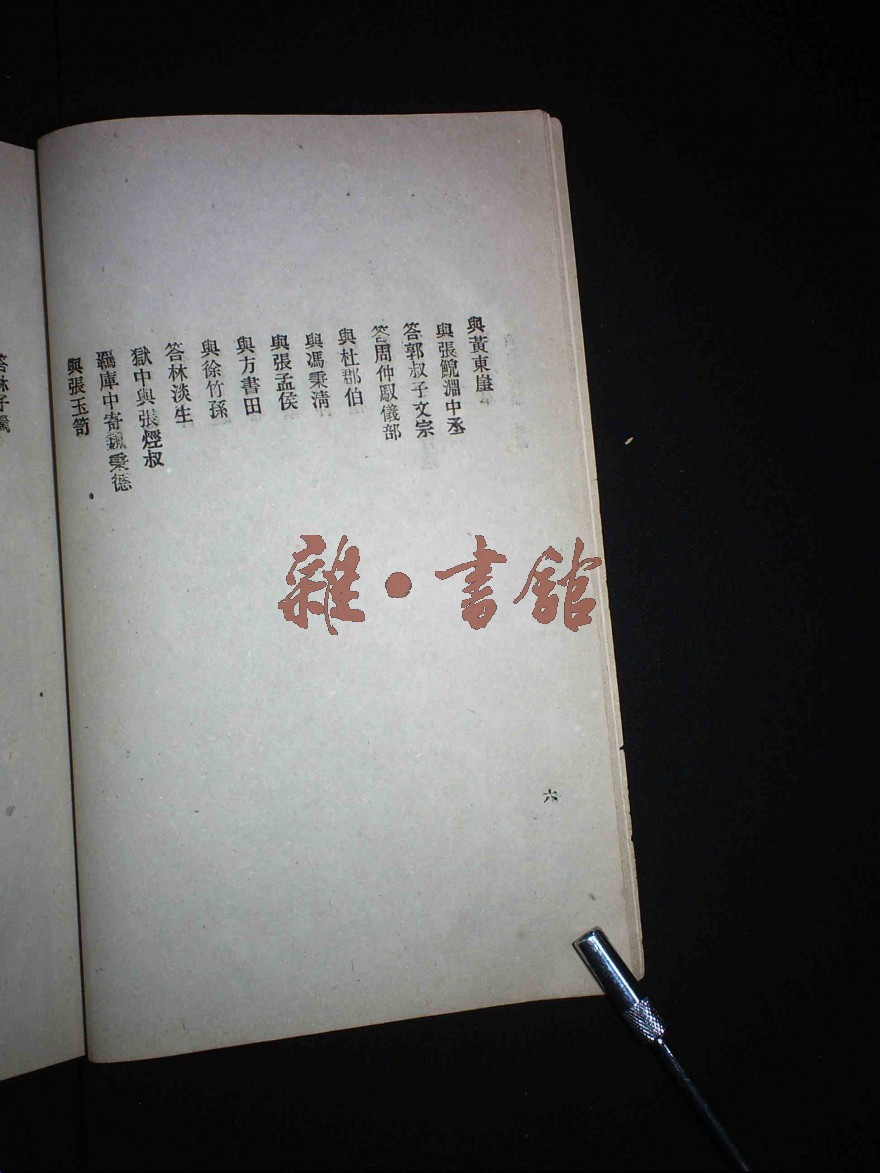 與黃東崖
與張鯢淵中丞
答郭叔子文宗
答周仲馭儀部
與杜郡伯
與馮秉清
與張孟侯
與方書田
與徐竹孫
答林淡生
獄中與張煙叔
羈庫中寄魏秉德
與張玉笥
六
雜·書館